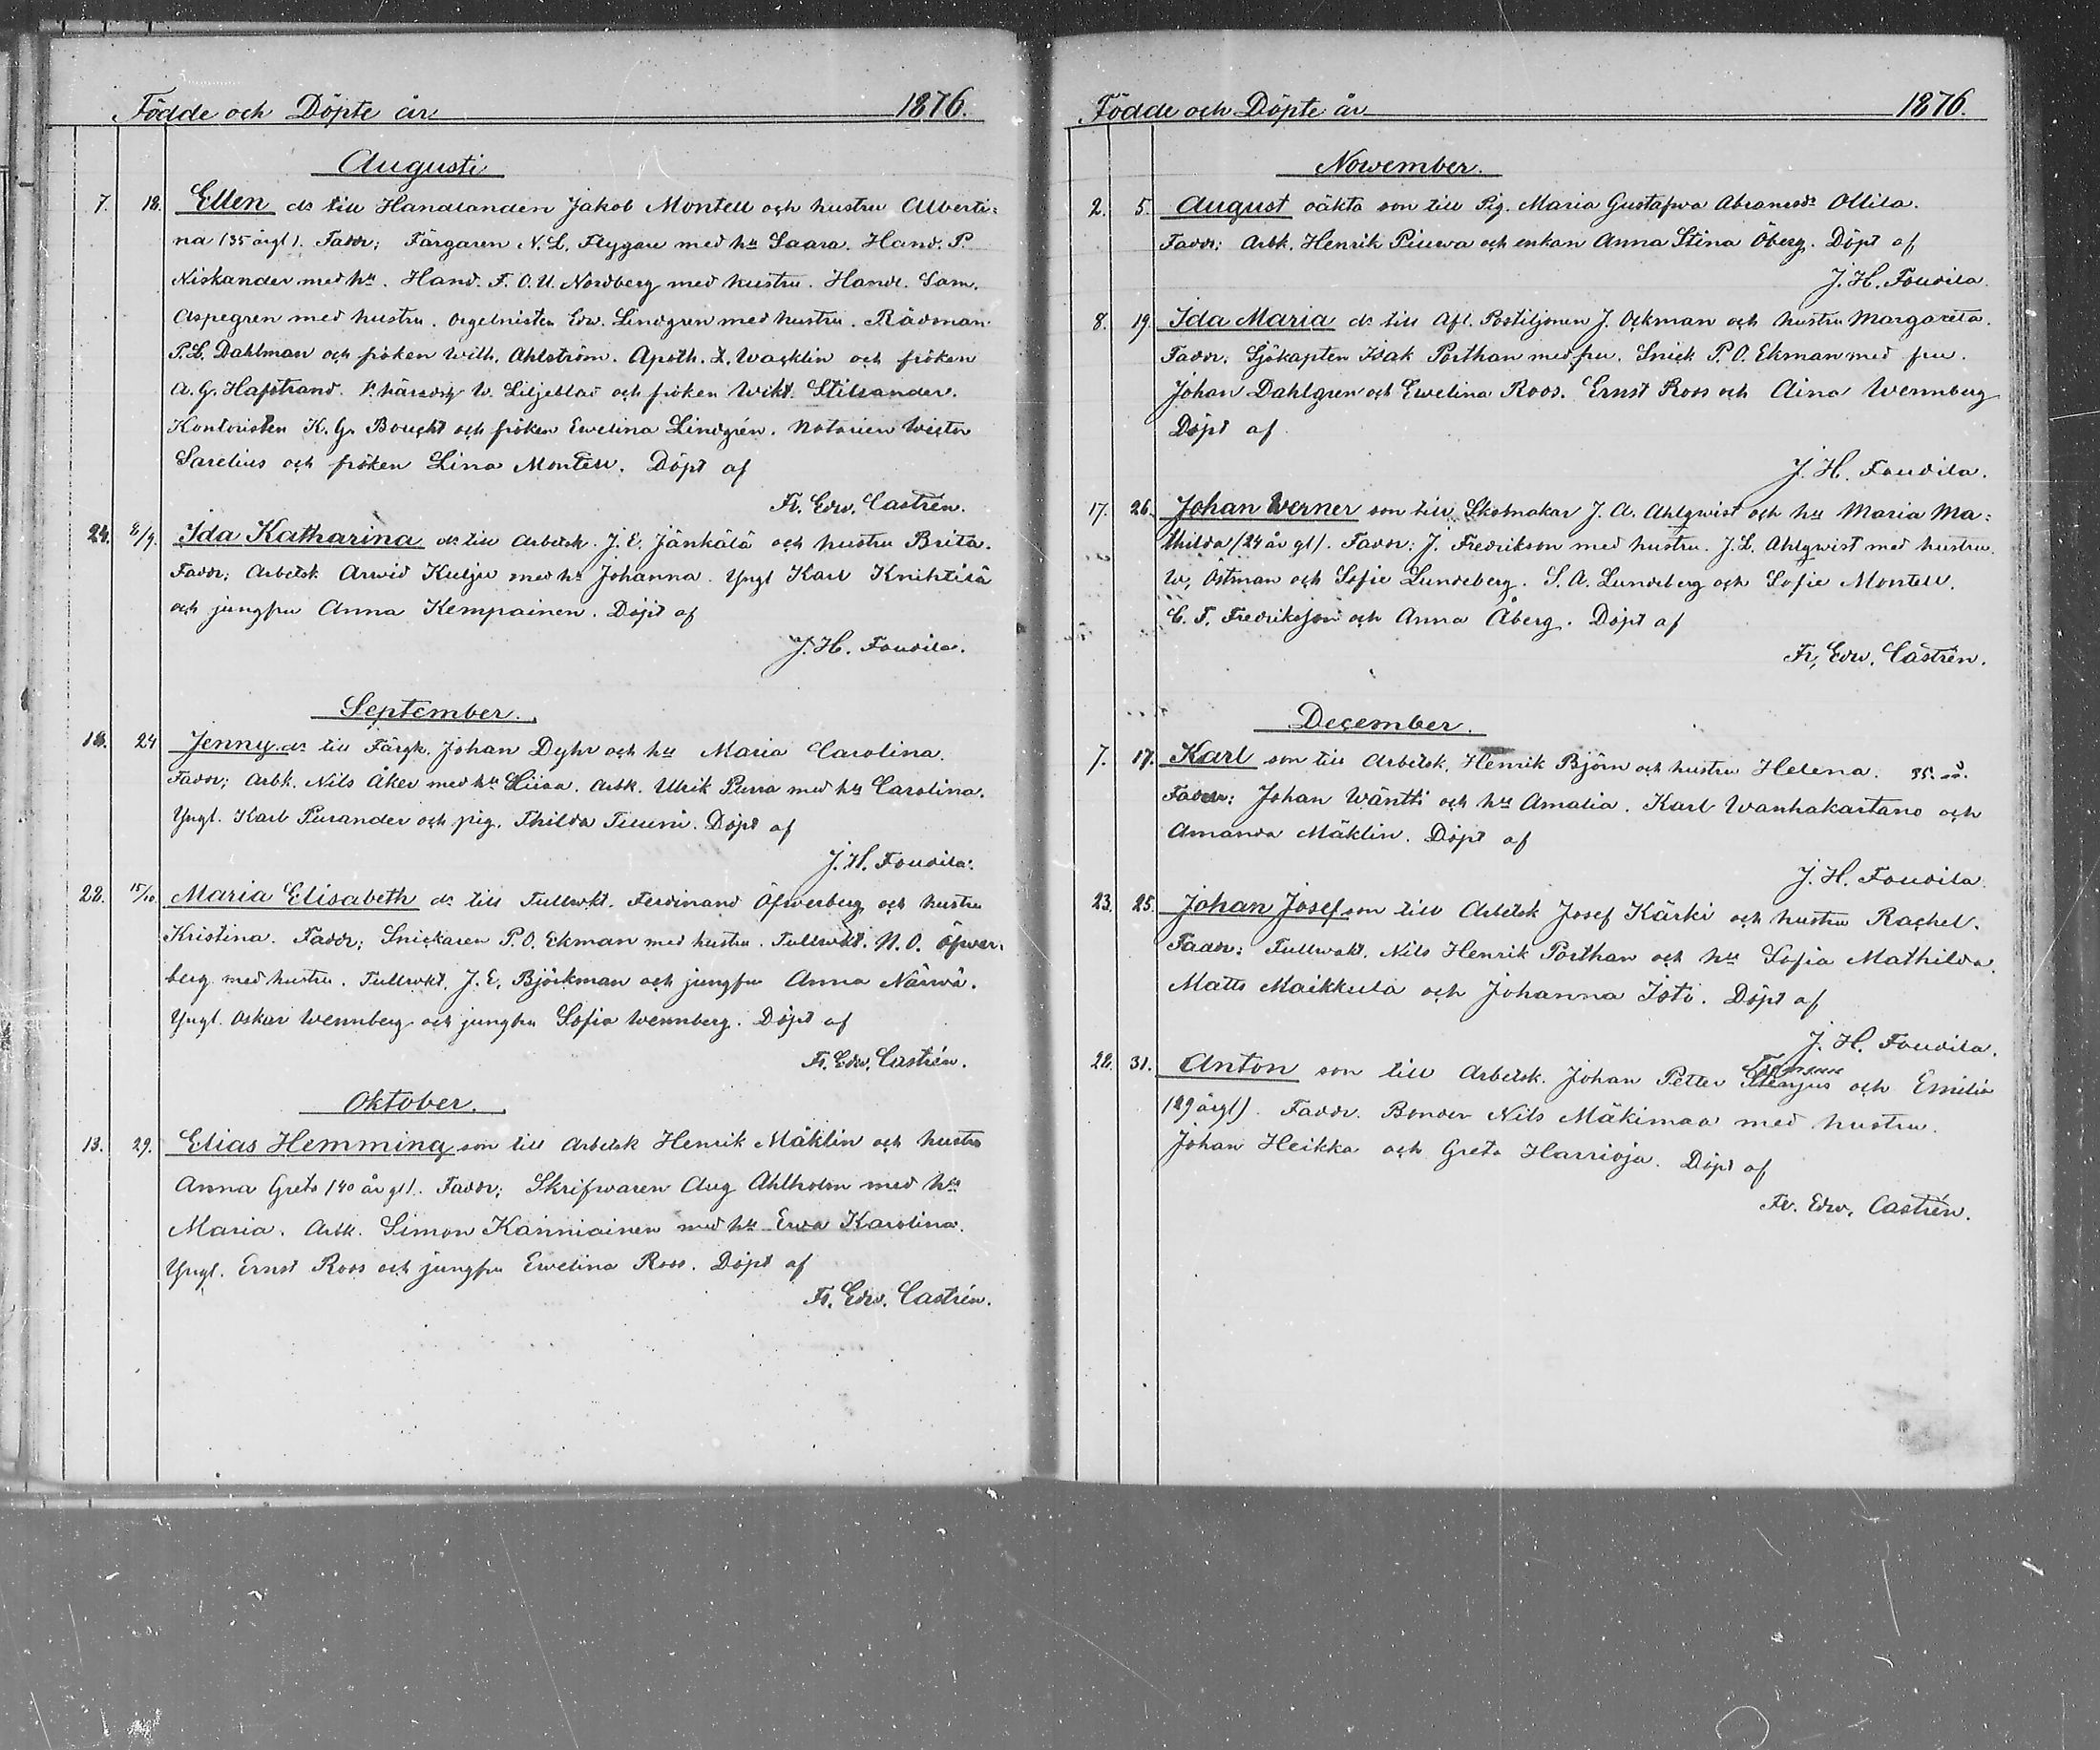 Födde och Döpte år 1876.
Augusti
7. 18. Ellen dr till Handlanden Jakob Montell och hustru Alberti=
na (35 årgl). Faddr; Färgaren N. L. Flygare med hu Saara. Hand. P.
Niskander med hu. Hand. F. O. U. Nordberg med hustru. Handl. Sam.
Aspegren med hustru. Orgelnisten Edw. Lindgren med hustru. Rådman
P. L. Dahlman och fröken Wilh. Ahlström. Apoth. Z. Wacklin och fröken
A. G. Hafstrand. V. härsdsh W. Liljeblad och fröken Wikt. Stilsander.
Kontoristen K. G. Bought och fröken Ewelina Lindgrén. Notarien Victor
Sarelius och fröken Lina Montell. Döpt af
Fr. Edw. Castrén.
24. 8/9. Ida Katharina dr till Arbetsk. J. E. Jänkälä och hustru Brita.
Faddr; Arbetsk Arwid Kulju med hu Johanna. Yngl Karl Knihtilä
och jungfru Anna Kempainen. Döpt af
J. H. Foudila.
September.
18. 24 Jenny dr till Färgk. Johan Dyhr och hu Maria Carolina.
Faddr; Arbk. Nils Åker med hu Hiisa. Arbk. Ulrik Purra med hu Carolina.
Yngl. Karl Purander och pig. Thilda Tuuni. Döpt af
J. H. Foudila.
22. 15/10. Maria Elisabeth dr till Tullwkt. Ferdinand Öfwerberg och hustru
Kristina. Faddr; Snickaren P. O. Ekman med hustru. Tullwkt. N. O. Öfwer-
berg med hustru. Tullwkt. J. E. Björkman och jungfru Anna Närwä.
Yngl. Oskar Wennberg och jungfru Sofia Wennberg. Döpt af
Fr. Edw. Castrén.
Oktober.
13. 29. Elias Hemming son till Arbetsk Henrik Mäklin och hustru
Anna Greta (40 år gl). Faddr; Skrifwaren Aug Ahlholm med hu
Maria. Arbk. Simon Känniäinen med hu Ewa Karolina.
Yngl. Ernst Roos och jungfru Ewelina Roos. Döpt af
Fr. Edw. Castrén.
Födde och Döpte år 1876.
November.
2. 5. August oäkta son till Pig. Maria Gustafwa Abramsdr Ollila.
Faddr: Arbk. Henrik Piuwa och enkan Anna Stina Öberg. Döpt af
J. H. Foudila.
8. 19. Ida Maria dr till Afl. Postiljonen J. Ockman och hustru Margareta.
Faddr. Sjökapten Isak Porthan med fru. Snick P. O. Ekman med fru.
Johan Dahlgren och Ewelina Roos. Ernst Roos och Aina Wennberg
Döpt af
J. H. Foudila.
17. 26. Johan Werner son till Skomakar J. A. Ahlqwist och hu Maria Ma=
thilda (24 år gl). Faddr: J. Fredrikson med hustru. J. L. Ahlqwist med hustru.
W. Östman och Sofie Lundeberg. S. A. Lundeberg och Sofie Montell.
C. F. Fredriksson och Anna Åberg. Döpt af
Fr. Edw. Castrén.
December.
7. 17. Karl son till Arbetsk. Henrik Björn och hustru Helena. 35 år.
Faddr: Johan Wäntti och hu Amalia. Karl Wanhakartano och
Amanda Mäklin. Döpt af
J. H. Foudila.
23. 25. Johan Josef son till Arbetsk Josef Kärki och hustru Rachel.
Faddr: Tullwakt. Nils Henrik Porthan och hu Sofia Mathilda.
Matts Maikkula och Johanna Isto. Döpt af
J. H. Foudila.
28. 31. Anton son till Arbetsk. Johan Petter och Emilia
(29 årgl). Faddr. Bonden Nils Mäkimaa med hustru.
Johan Heikka och Greta Harrioja. Döpt af
Fr. Edw. Castrén.